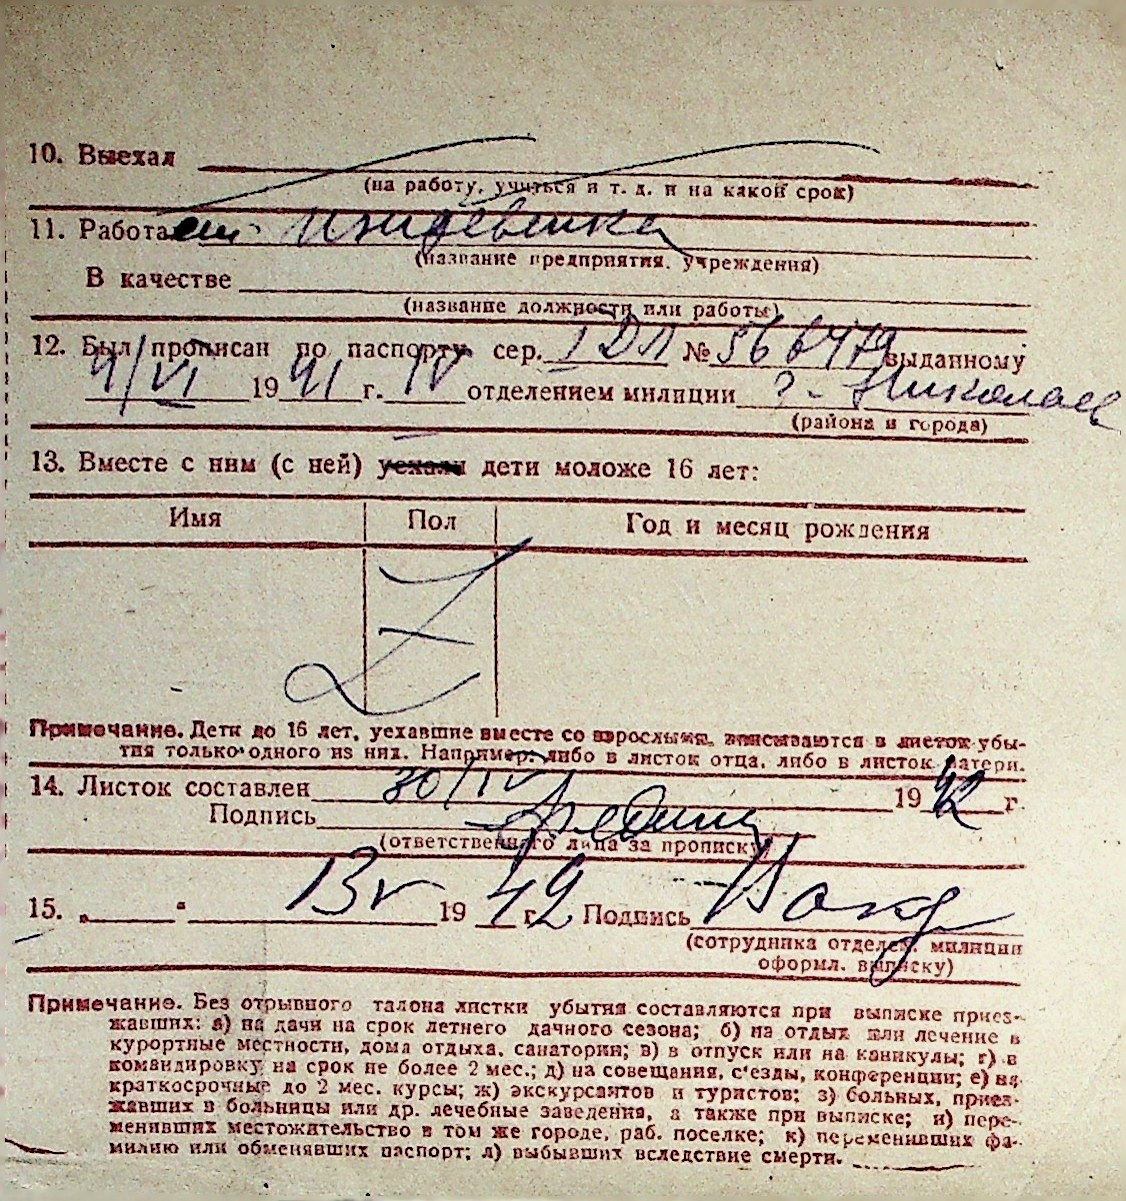 10. Выехал
(на работу, учиться и т. д. и на какой срок)
11. Работа иждивенка
(название предприятия, учреждения)
В качестве
(название должности или работы)
12. Был прописан по паспорту сер. I ДЛ № 566479 выданному
4/VI 1941 г. IV отделением милиции г. Николаев
(района и города)
13. Вместе с ним (с ней) уехали дети моложе 16 лет:
Имя Пол Год и месяц рождения
Z
Примечание. Дети до 16 лет, уехавшие вместе со взрослыми, вписываются в листок убы-
тия только одного из них. Например: либо в листок отца, либо в листок матери.
14. Листок составлен 30/IV 1942 г.
Подпись
(ответственного лица за прописку)
15. „ “ 13 V 1942 г. Подпись
(сотрудника отделен. милиции
оформл. выписку)
Примечание. Без отрывного талона листки убытия составляются при выписке приез-
жавших: а) на дачи на срок летнего дачного сезона; б) на отдых или лечение в
курортные местности, дома отдыха, санатории; в) в отпуск или на каникулы; г) в
командировку на срок не более 2 мес.; д) на совещания, с'езды, конференции; е) на
краткосрочные до 2 мес. курсы; ж) экскурсантов и туристов; з) больных, приез-
жавших в больницы или др. лечебные заведения, а также при выписке; и) пере-
менивших местожительство в том же городе, раб. поселке; к) переменивших фа-
милию или обменявших паспорт; л) выбывших вследствие смерти.